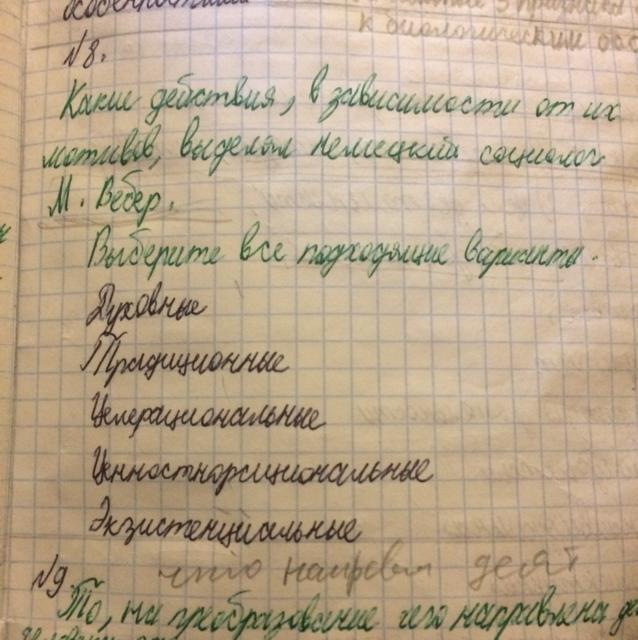 особенностями
к биологическим
№8.
Какие действия, в зависимости от их
мотивов, выделял немецкий социолог
М. Вебер.
Выберите все подходящие варианты.
Духовные
Традиционные
Целерациональные
Ценностнорациональные
Экзистенциальные
№9
То, на преобразование чего направлена